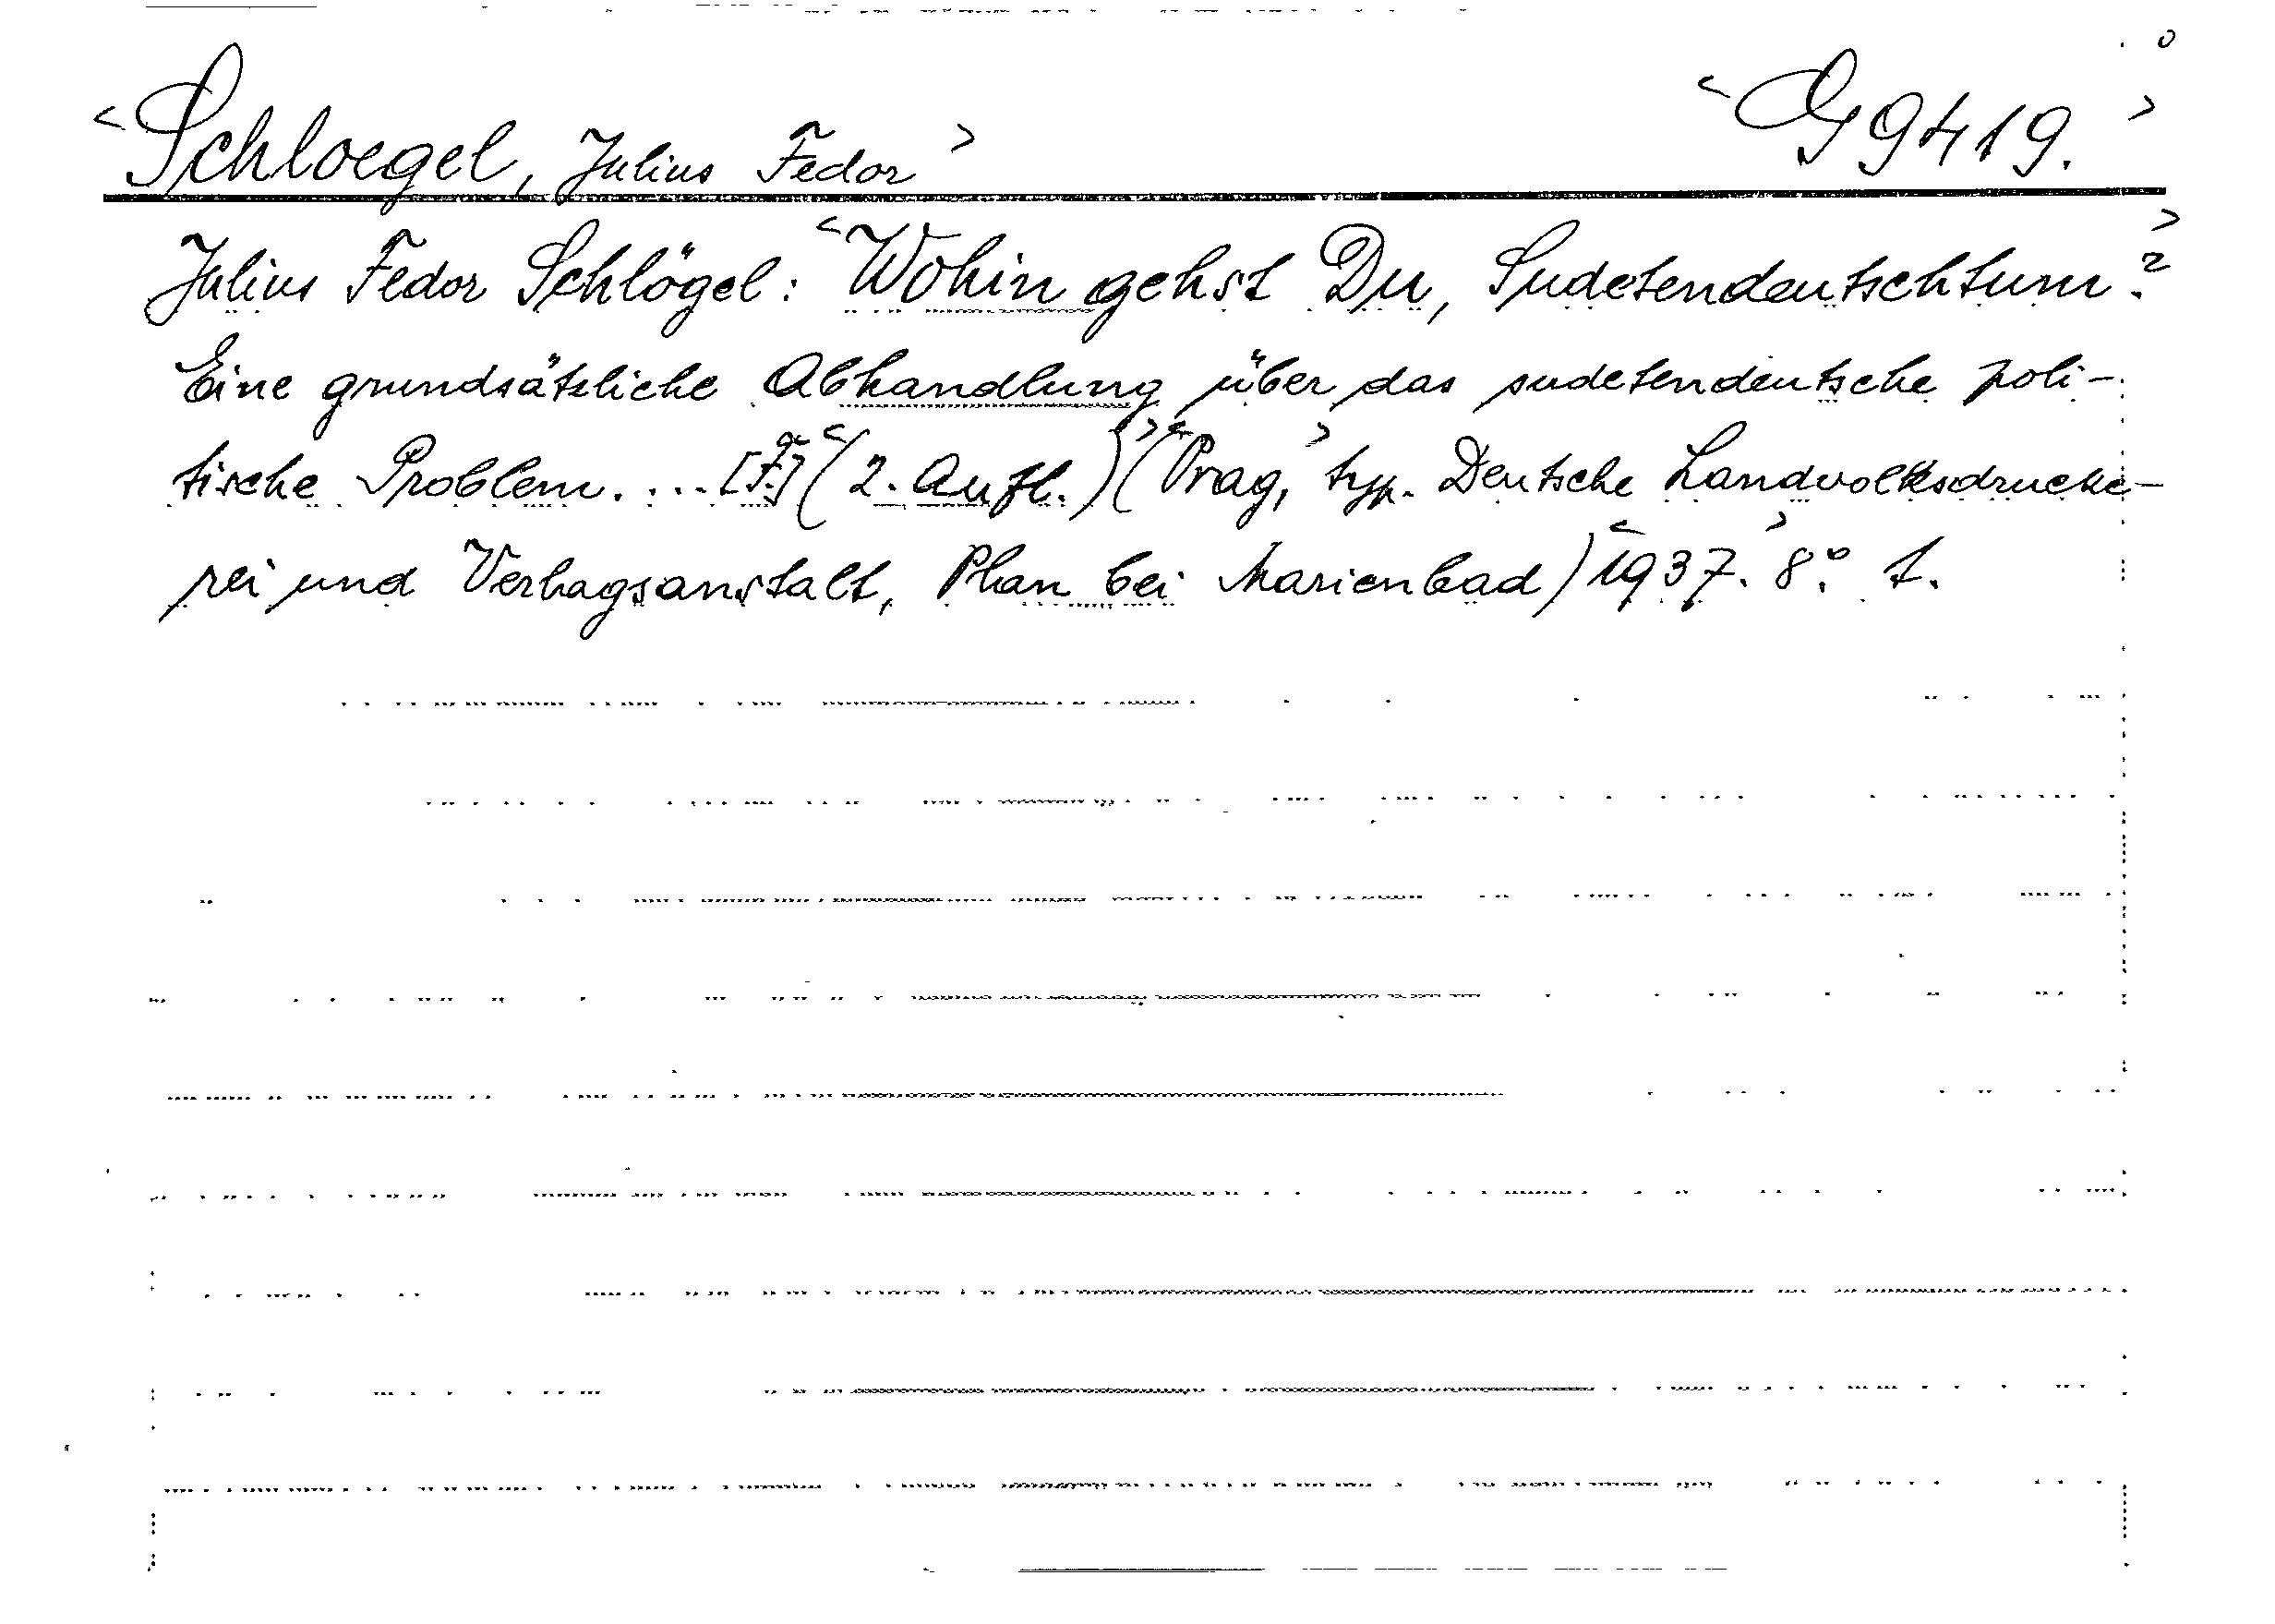 <Schloegel, Julius Fedor> <G 9419.>
Julius Fedor Schlögel: <Wohin gehst Du, Sudetendeutschtum?>
Eine grundsätzliche Abhandlung über das sudetendeutsche poli-
tische Problem. ... [F.] <(2. Aufl.)> (<Prag,> typ. Deutsche Landvolksdrucke-
rei und Verlagsanstalt, Plan bei Marienbad) <1937.> 8°. 1.